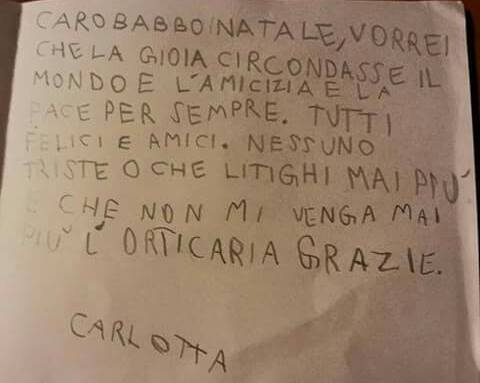 CARO BABBO NATALE, VORREI
CHE LA GIOIA CIRCONDASSE IL
MONDO E L'AMICIZIA E LA
PACE PER SEMPRE. TUTTI
FELICI E AMICI. NESSUNO
TRISTE O CHE LITIGHI MAI PIÙ
E CHE NON MI VENGA MAI
PIÙ L'ORTICARIA GRAZIE.
CARLOTTA